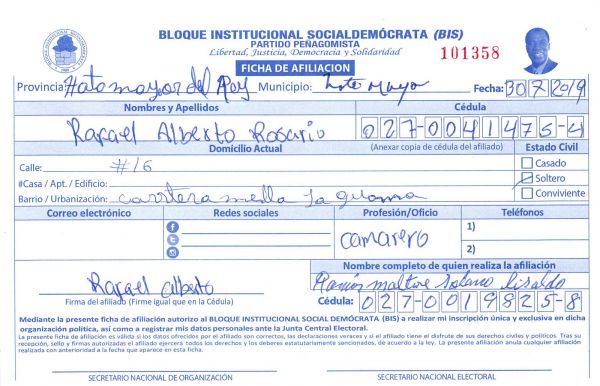 BLOQUE INSTITUCIONAL SOCIALDEMÓCRATA (BIS)
PARTIDO PEÑAGOMISTA
Libertad, Justicia, Democracia y Solidaridad
101358
FICHA DE AFILIACION
Provincia: Hato mayor del Rey Municipio: Hato Mayor Fecha: 30/7/2019
Nombres y Apellidos Cédula
Rafael Alberto Rosario 027-0041475-4
Domicilio Actual (Anexar copia de cédula del afiliado) Estado Civil
Calle: #16 Casado
#Casa / Apt. / Edificio: Soltero
Barrio / Urbanización: carretera mella la guama Conviviente
Correo electrónico Redes sociales Profesión/Oficio Teléfonos
camarero 1)
2)
Nombre completo de quien realiza la afiliación
Rafael alberto Ramón Solano
Firma del afiliado (Firme igual que en la Cédula) Cédula: 027-0019825-8
Mediante la presente ficha de afiliación autorizo al BLOQUE INSTITUCIONAL SOCIAL DEMÓCRATA (BIS) a realizar mi inscripción única y exclusiva en dicha
organización política, así como a registrar mis datos personales ante la Junta Central Electoral.
La presente ficha de afiliación es válida si los datos ofrecidos por el afiliado son correctos, las declaraciones veraces y si el afiliado tiene el disfrute de sus derechos civiles y políticos. Tras su
recepción, sello y firmas autorizadas el afiliado ejercerá todos los derechos y los deberes estatutariamente sancionados, de acuerdo a la ley. La presente afiliación anula cualquier afiliación
realizada con anterioridad a la fecha que aparece en esta ficha.
SECRETARIO NACIONAL DE ORGANIZACIÓN SECRETARIO NACIONAL ELECTORAL